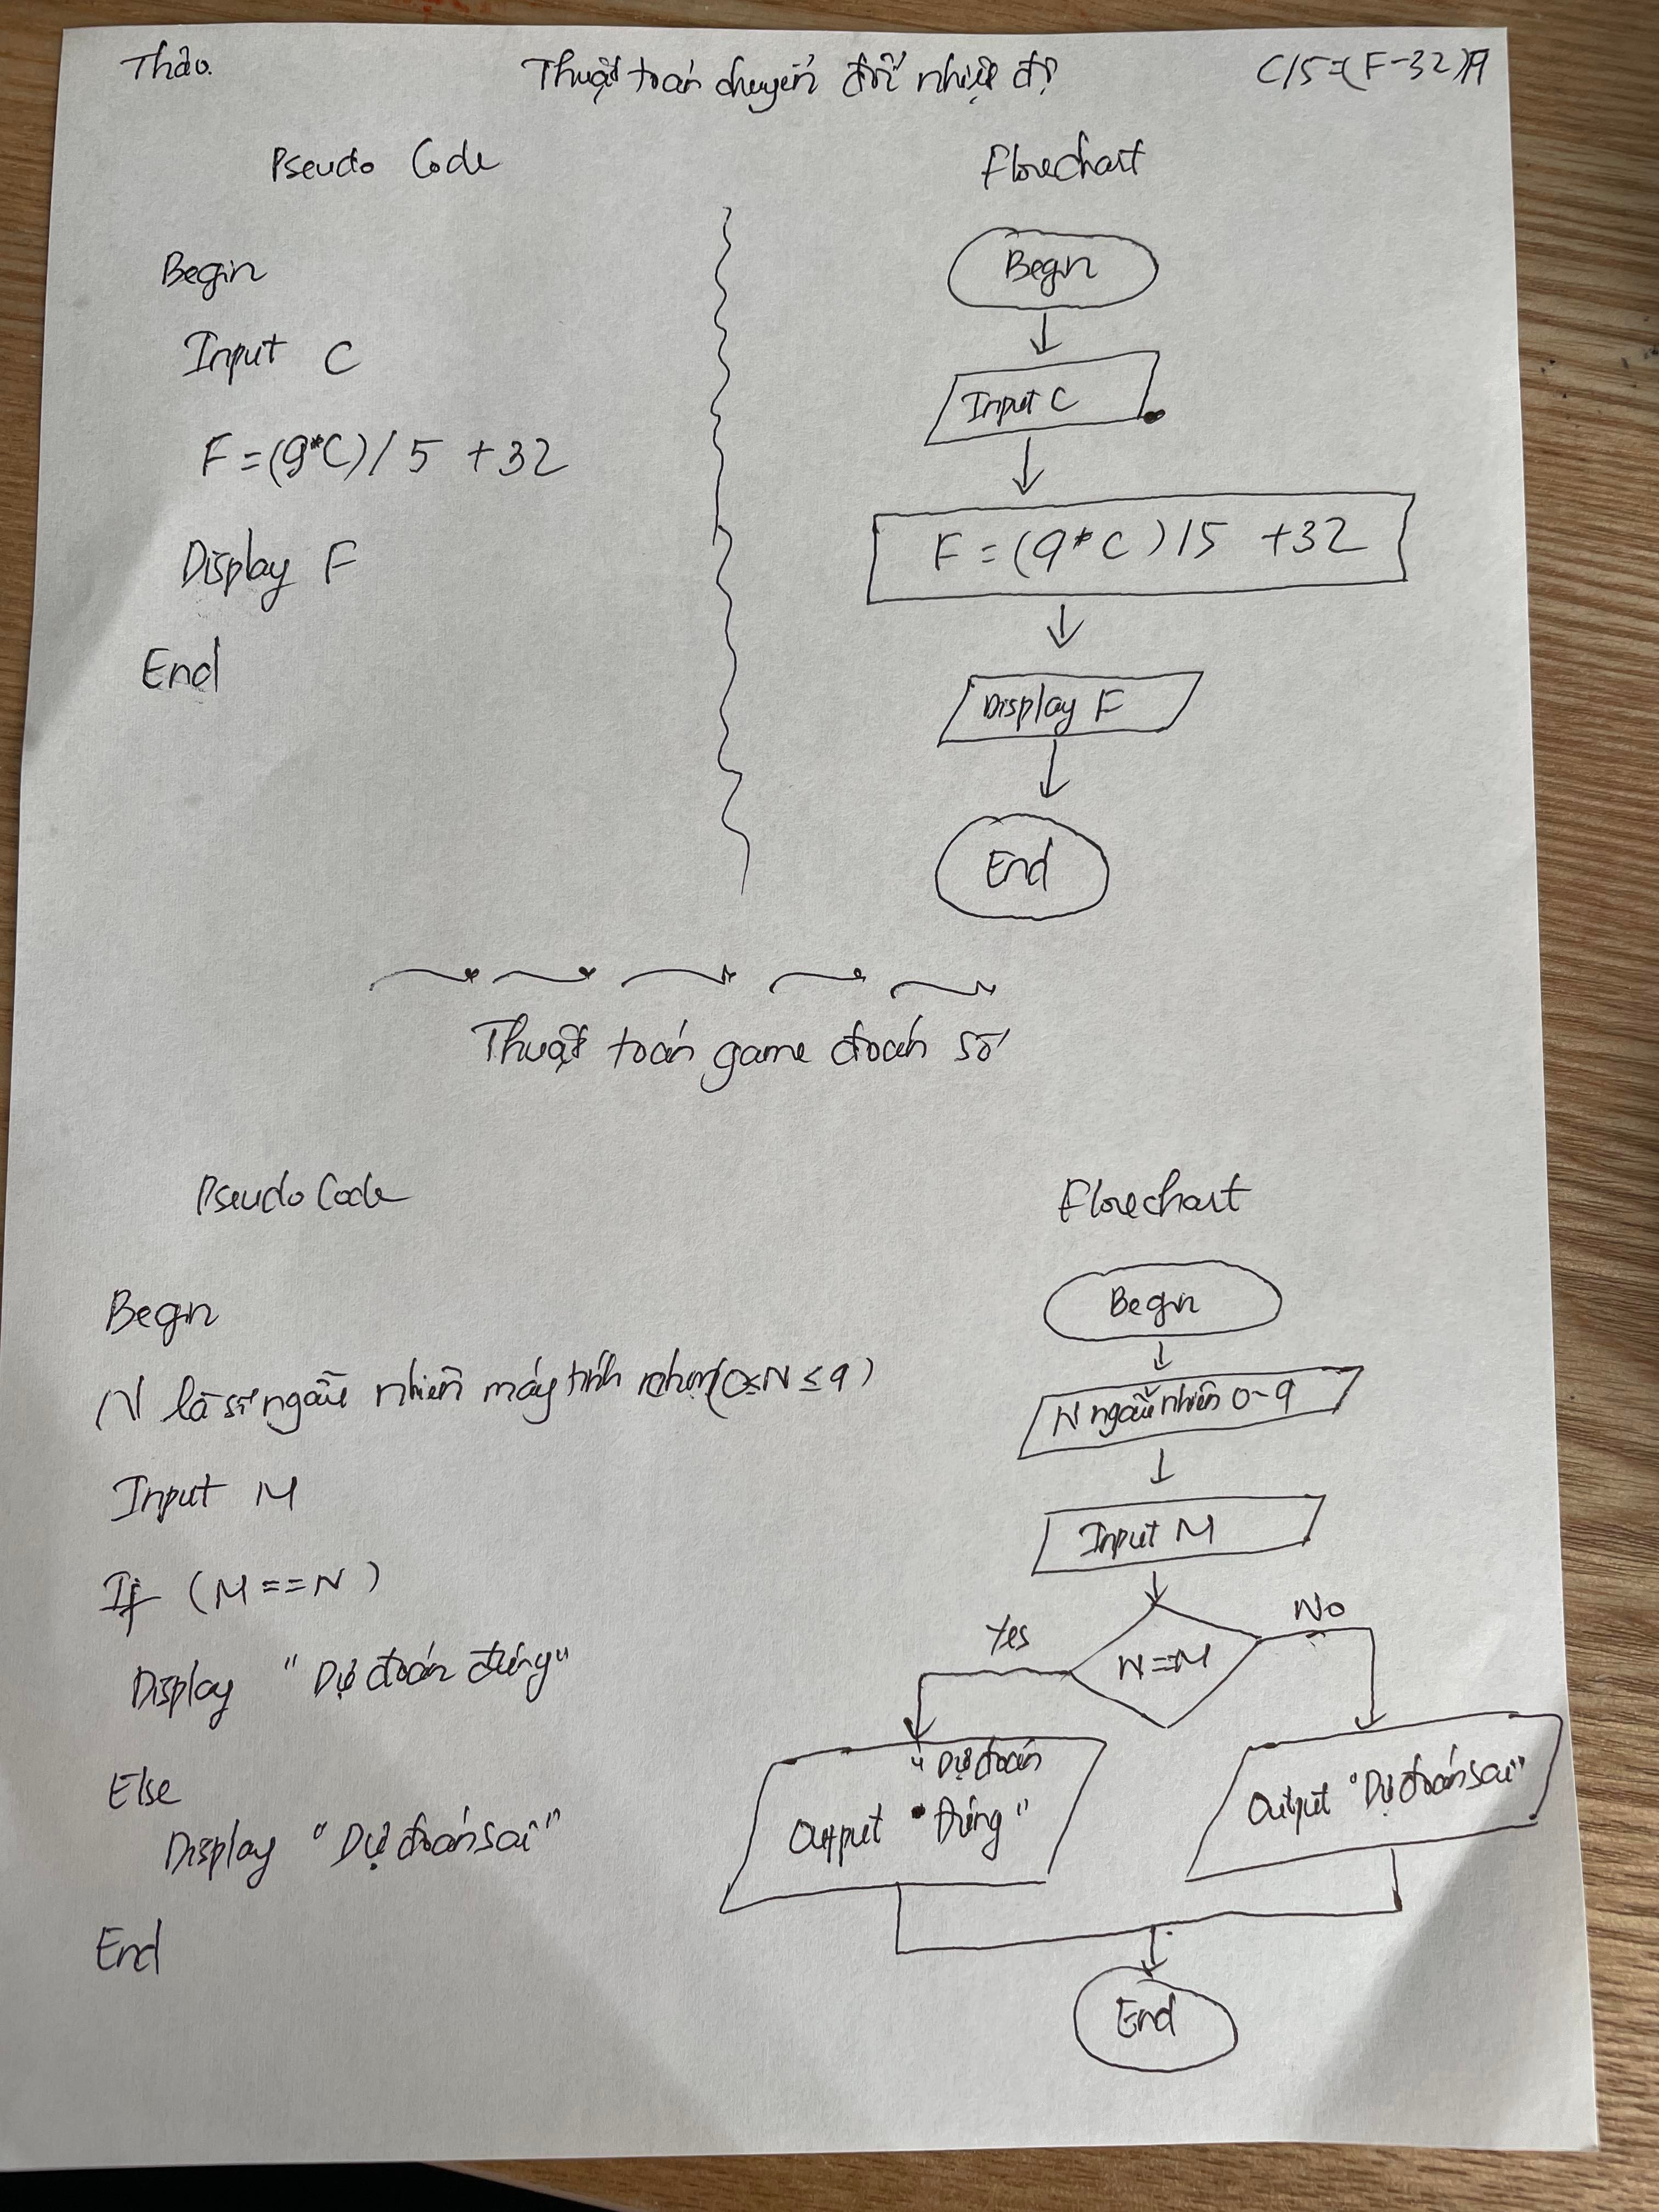 Thảo.
Thuật toán chuyển đổi nhiệt độ
C/5=(F-32)/9
Pseudo Code
Begin
Input C
F=(9*C)/5 +32
Display F
End
Flowchart
Begin
Input C
F=(9*C)/5 +32
Display F
End
Thuật toán game đoán số
Pseudo Code
Begin
N là số ngẫu nhiên máy tính chọn(0≤N≤9)
Input M
If (M==N)
Display "Dự đoán đúng"
Else
Display "Dự đoán sai"
End
Flowchart
Begin
N ngẫu nhiên 0-9
Input M
N=M
Yes
No
"Dự đoán
Output Đúng"
Output "Dự đoán sai"
End